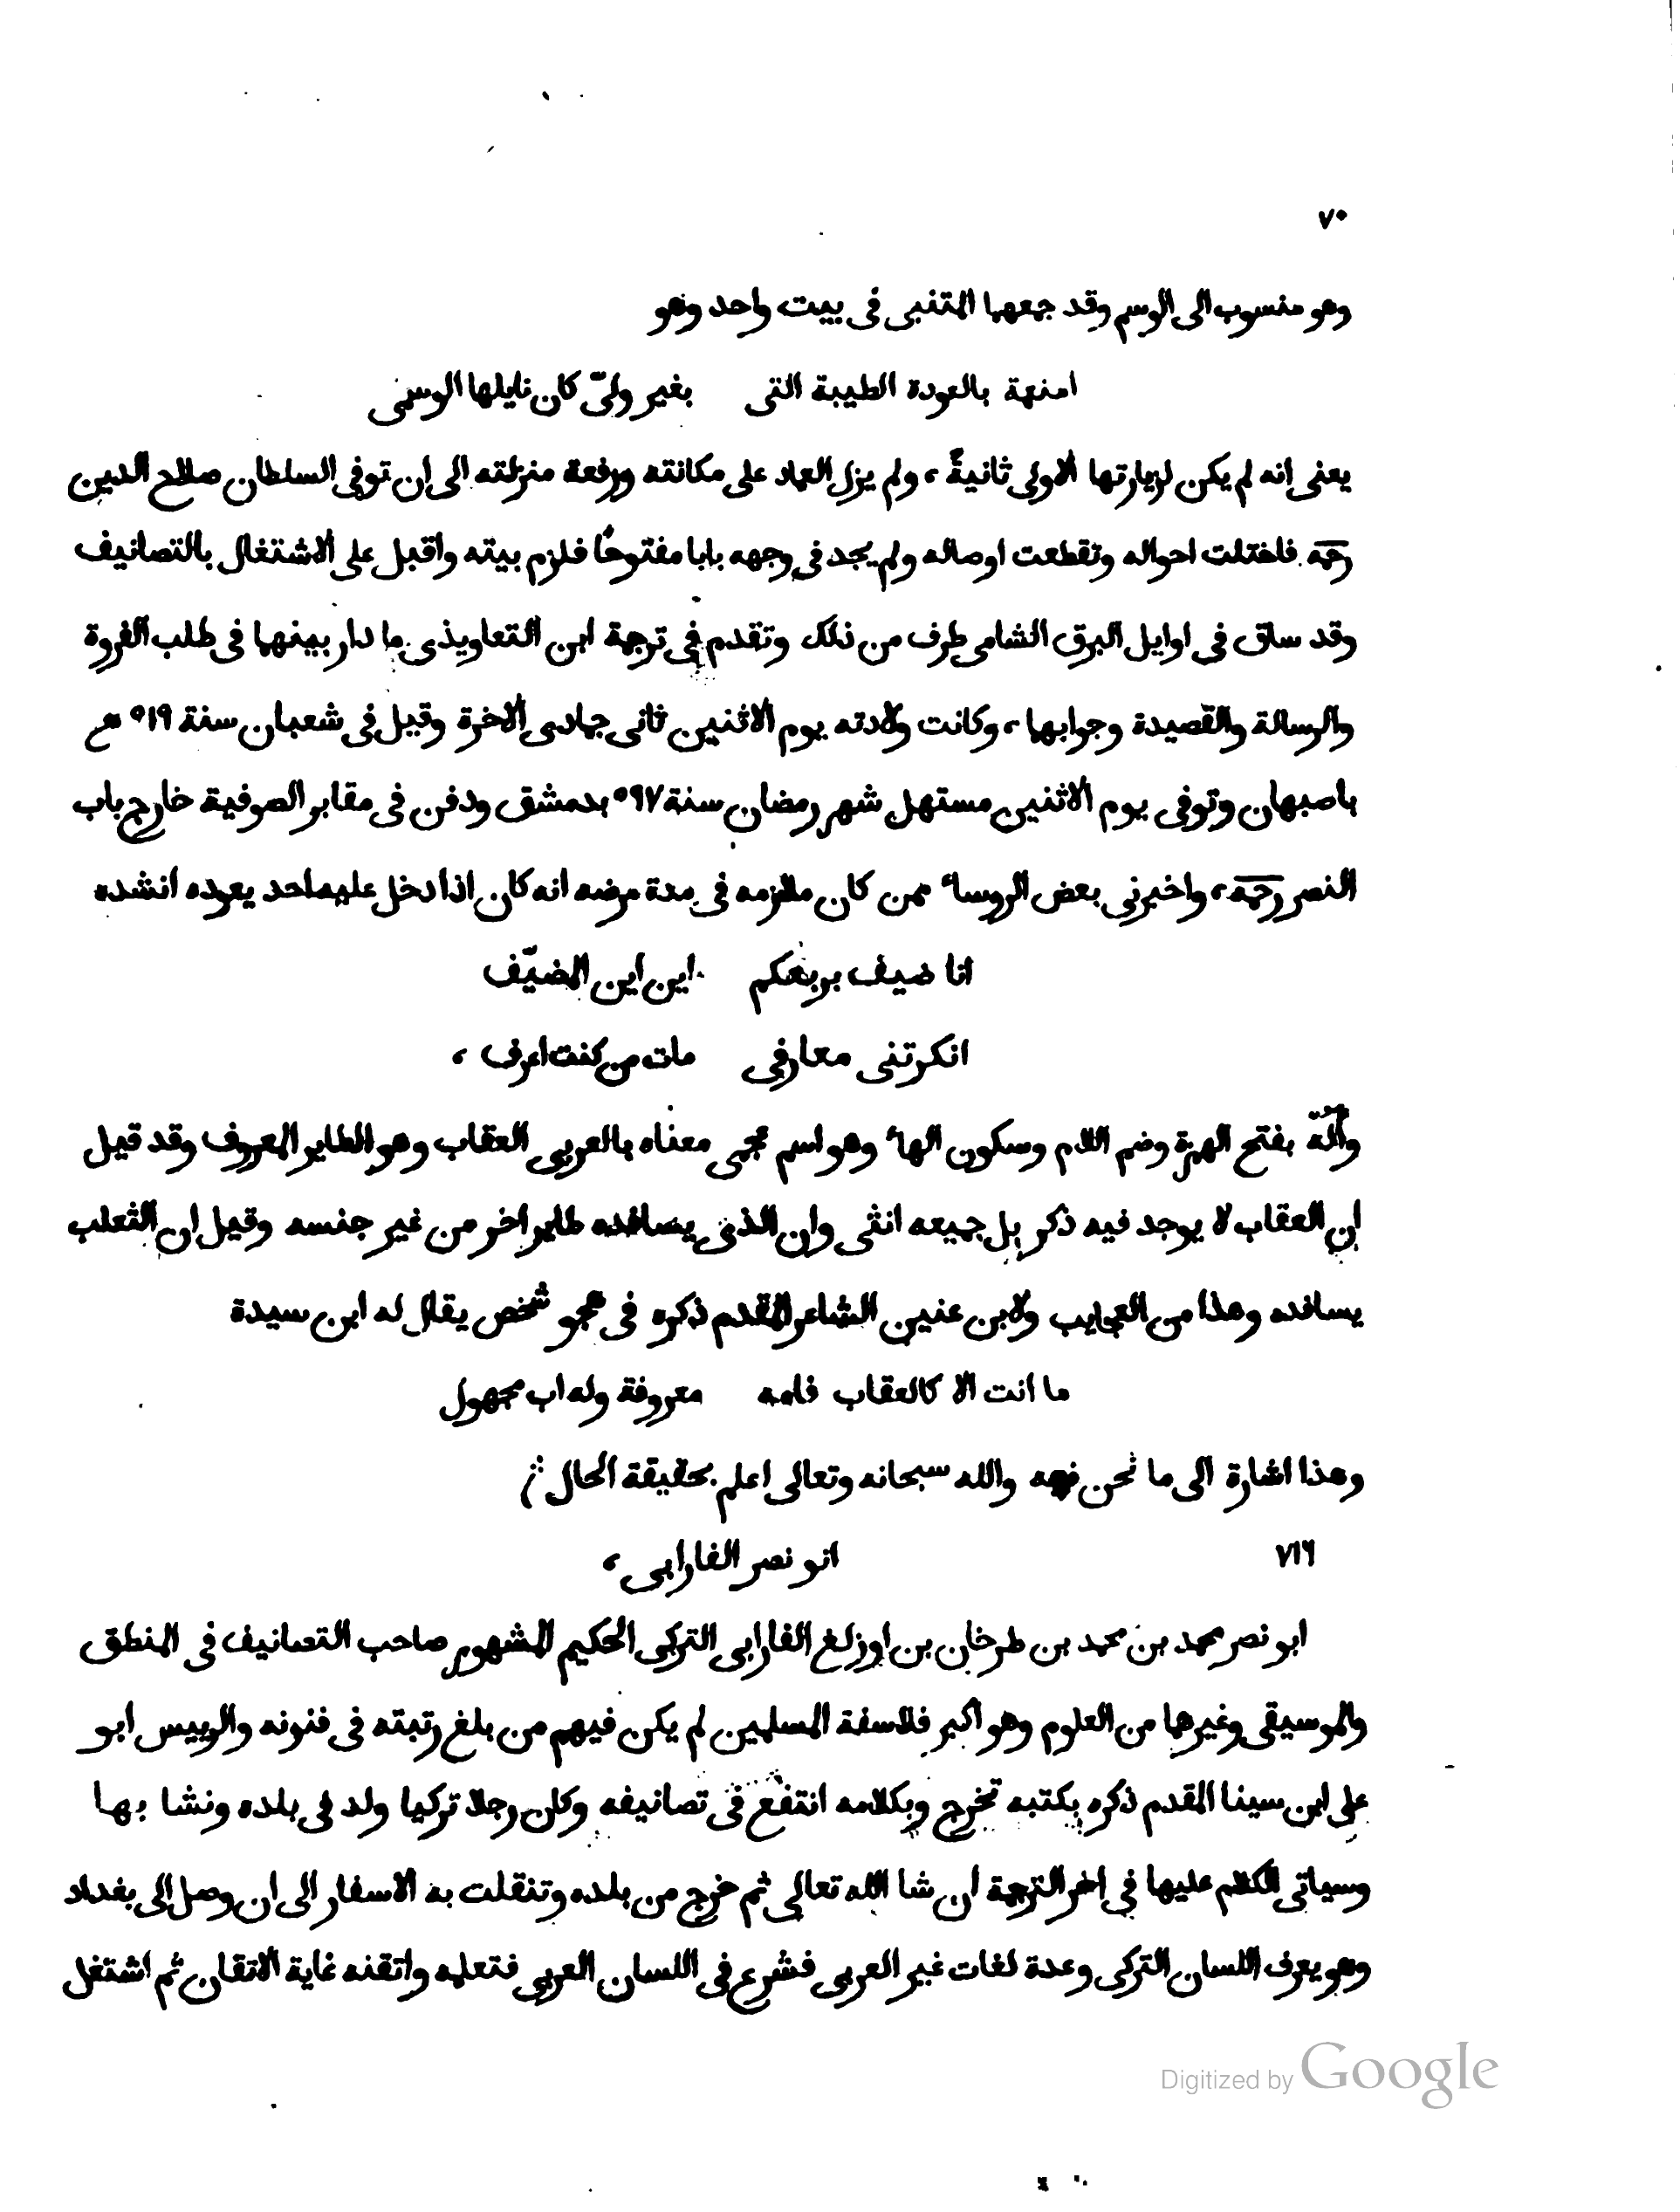 ٧٠
وهو منسوب الى الوسم وقد جمعهما المتنبى فى بيت واحد وهو
امنعمة بالعودة الظبية التى بغير ولىّ كان نايلها الوسمى
يعنى انه لم يكن لزيارتها الاولى ثانيةً ، ولم يزل العماد على مكانته ورفعة منزلته الى ان توفى السلطان صلاح الدين
رحمه فاختلت احواله وتقطعت اوصاله ولم يجد فى وجهه بابا مفتوحًا فلزم بيته واقبل على الاشتغال بالتصانيف
وقد ساق فى اوايل البرق الشامى طرف من ذلك وتقدم فى ترجمة ابن التعاويذى ما دار بينهما فى طلب الفروة
والرسالة والقصيدة وجوابهما ، وكانت ولادته يوم الاثنين ثانى جمادى الاخرة وقيل فى شعبان سنة ٥١٩
باصبهان وتوفى يوم الاثنين مستهل شهر رمضان سنة ٥٩٧ بدمشق ودفن فى مقابر الصوفية خارج باب
النصر رحمه ، واخبرنى بعض الروساء ممن كان ملازمه فى مدة مرضه انه كان اذا دخل عليه احد يعوده انشده
انا ضيف بربعكم اين اين المضيّف
انكرتنى معارفى مات من كنت اعرف ،
وأَلُه بفتح الهمزة وضم اللام وسكون الهاء وهو اسم عجمى معناه بالعربى العقاب وهو الطاير المعروف وقد قيل
ان العقاب لا يوجد فيه ذكر بل جميعه انثى وان الذى يسافده طاير اخر من غير جنسه وقيل ان الثعلب
يسافده وهذا من العجايب ولابن عنين الشاعر المقدم ذكره فى هجو شخص يقال له ابن سيدة
ما انت الا كالعقاب فامه معروفة وله اب مجهول
وهذا اشارة الى ما نحن فيه والله سبحانه وتعالى اعلم بحقيقة الحال
٧١٦ ابو نصر الفارابى ،
ابو نصر محمد بن محمد بن طرخان بن اوزلغ الفارابى التركى الحكيم المشهور صاحب التصانيف فى المنطق
والموسيقى وغيرهما من العلوم وهو اكبر فلاسفة المسلمين لم يكن فيهم من بلغ رتبته فى فنونه والرييس ابو
على ابن سينا المقدم ذكره بكتبه تخرج وبكلامه انتفع فى تصانيفه وكان رجلا تركيا ولد فى بلده ونشا بها
وسياتى الكلام عليها فى اخر الترجمة ان شا الله تعالى ثم خرج من بلده وتنقلت به الاسفار الى ان وصل الى بغداد
وهو يعرف اللسان التركى وعدة لغات غير العربى فشرع فى اللسان العربى فتعلمه واتقنه غاية الاتقان ثم اشتغل
Digitized by Google